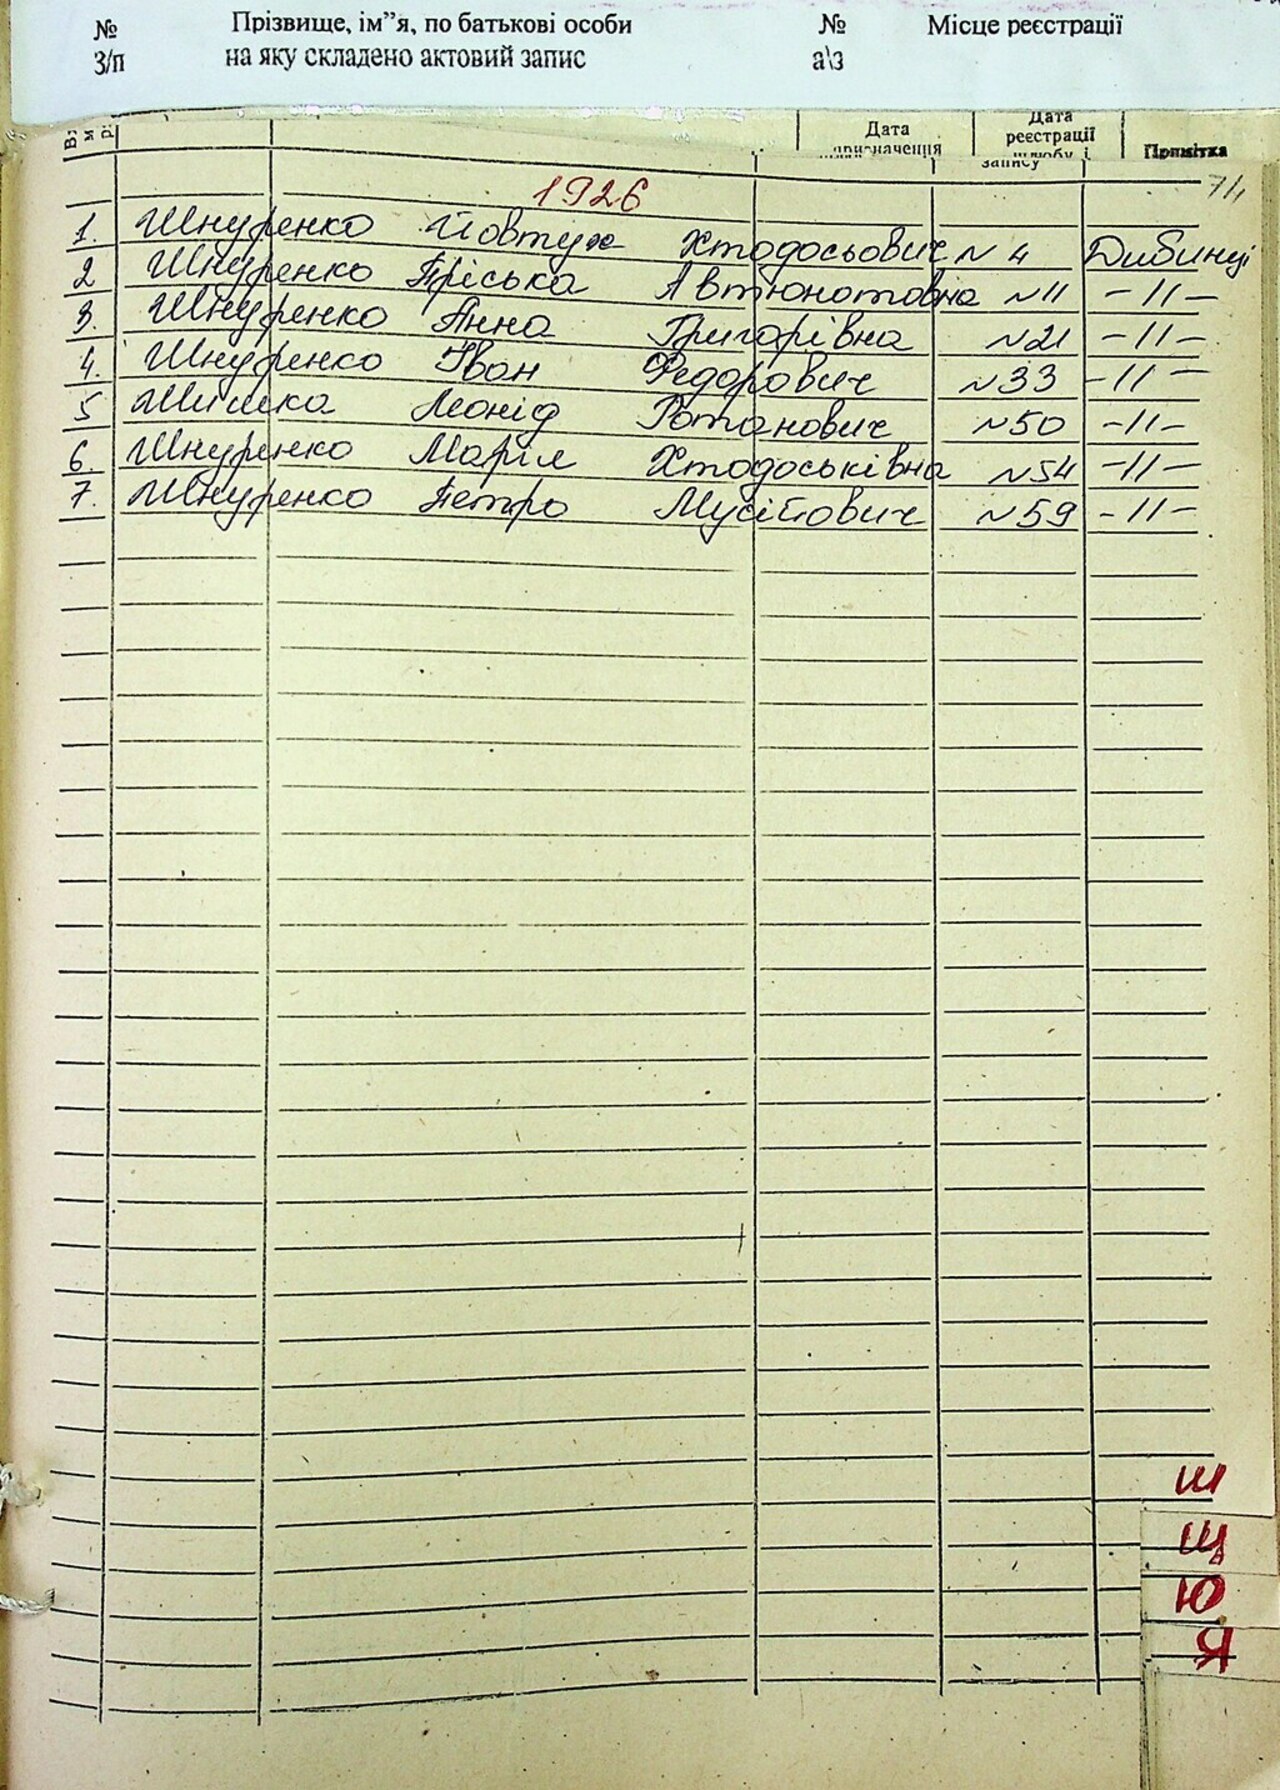 № Прізвище, ім"я, по батькові особи № Місце реєстрації
З/п на яку складено актовий запис а\з
Дата призначення
Дата реєстрації шлюбу і запису
Примітка
1926
1. Шнуренко Йовтух Хтодосьович N 4 Дибинці
2 Шнуренко Пріська Автюнотовна N11 -11-
3. Шнуренко Анна Григорівна N21 -11-
4. Шнуренко Іван Федорович N33 -11-
5 Шишка Леонід Ротанович N50 -11-
6. Шнуренко Марія Хтодоськівна N54 -11-
7. Шнуренко Петро Мусійович N59 -11-
Ш
Щ
Ю
Я